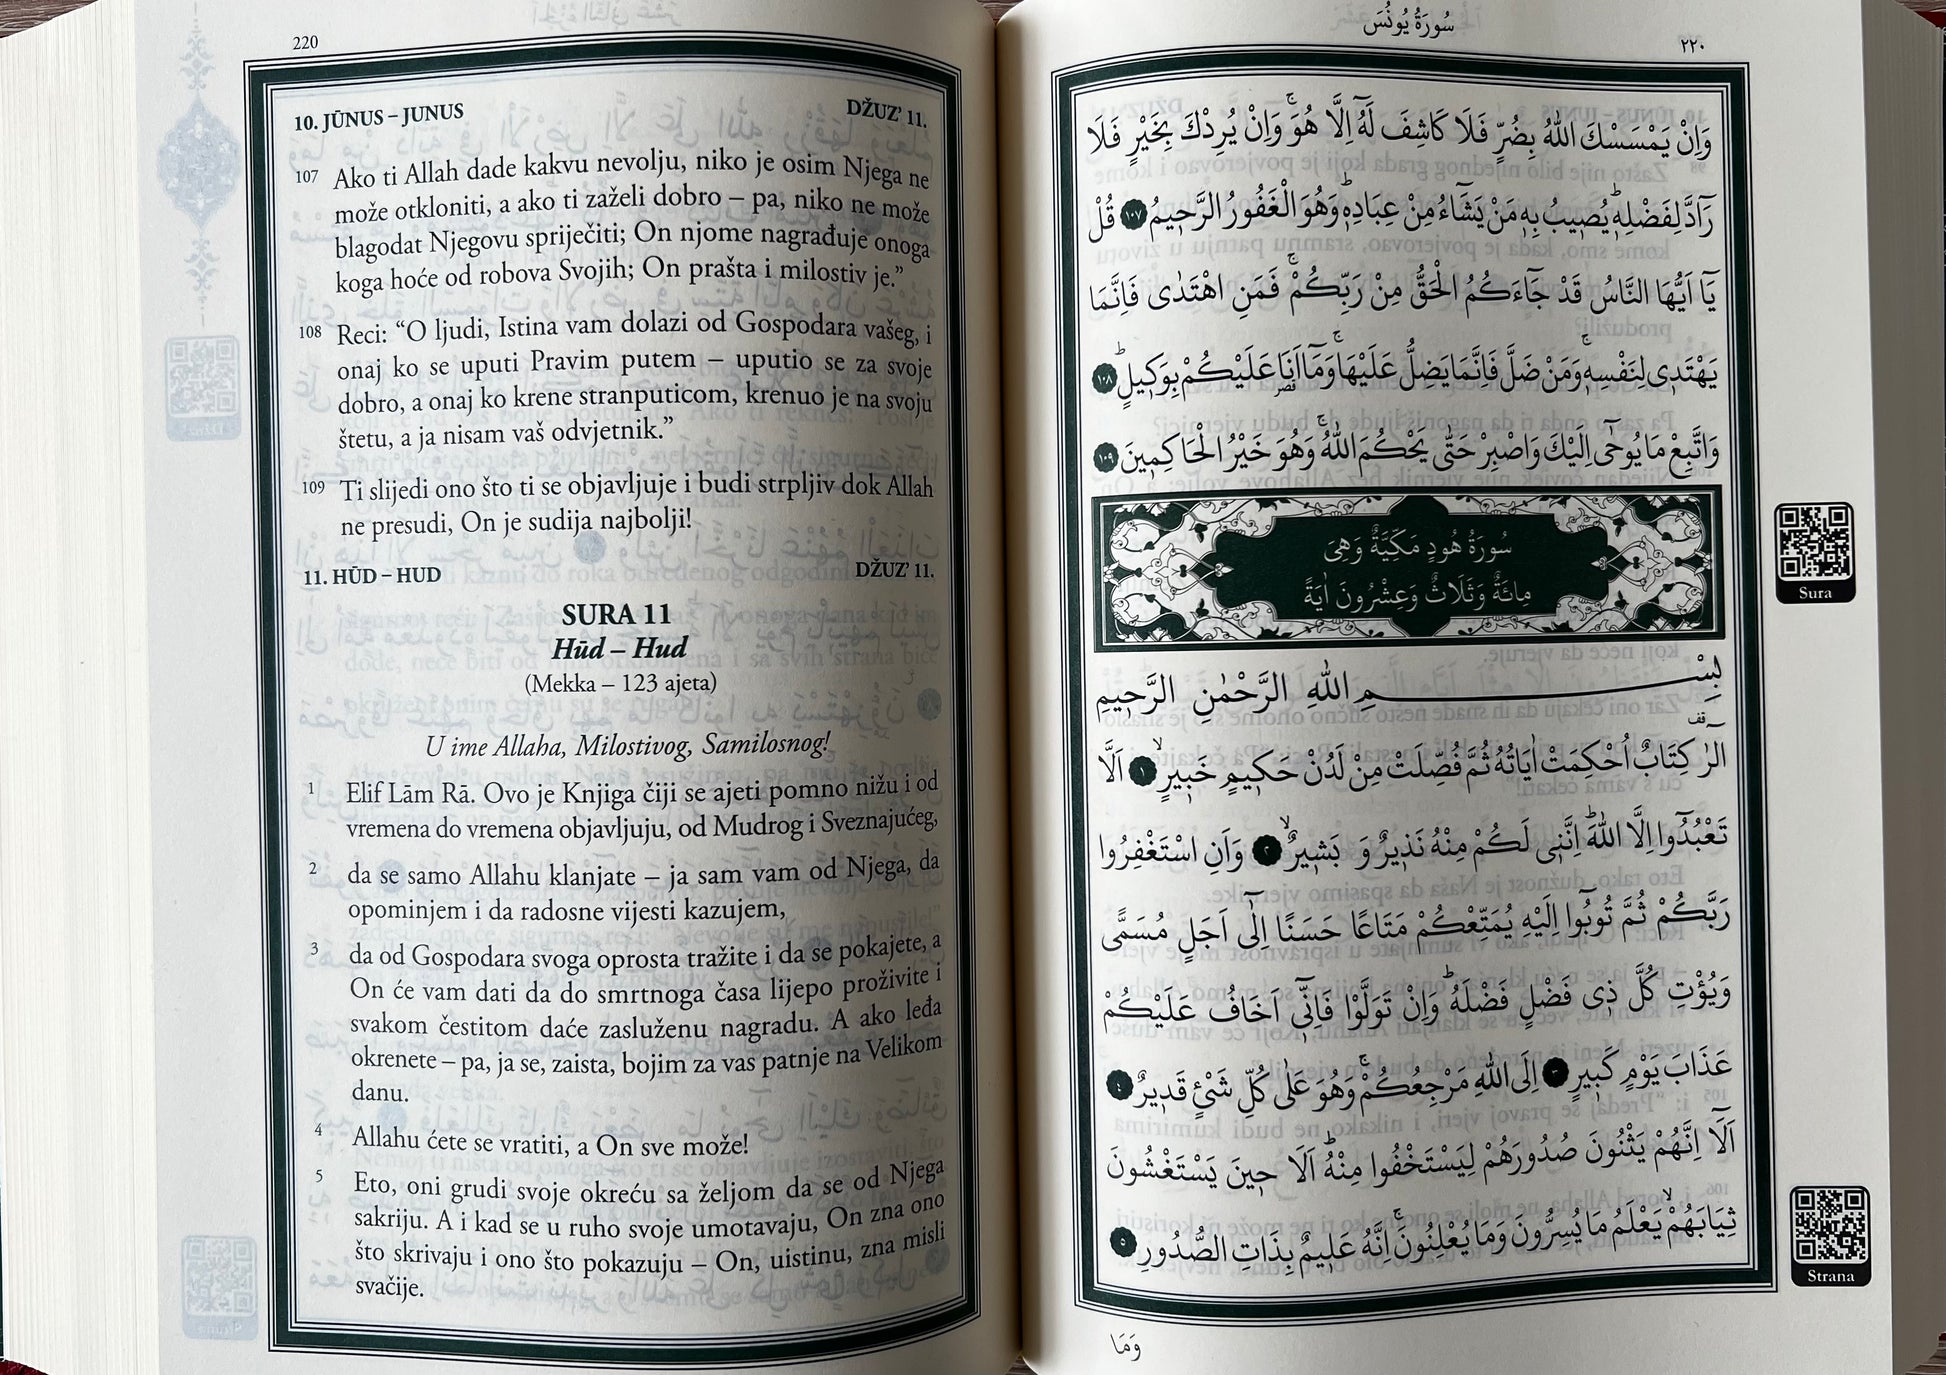 220
10. JŪNUS – JUNUS
DŽUZ’ 11.
107 Ako ti Allah dade kakvu nevolju, niko je osim Njega ne
može otkloniti, a ako ti zaželi dobro – pa, niko ne može
blagodat Njegovu spriječiti; On njome nagrađuje onoga
koga hoće od robova Svojih; On prašta i milostiv je.”
108 Reci: “O ljudi, Istina vam dolazi od Gospodara vašeg, i
onaj ko se uputi Pravim putem – uputio se za svoje
dobro, a onaj ko krene stranputicom, krenuo je na svoju
štetu, a ja nisam vaš odvjetnik.”
109 Ti slijedi ono što ti se objavljuje i budi strpljiv dok Allah
ne presudi, On je sudija najbolji!
11. HŪD – HUD
DŽUZ’ 11.
SURA 11
Hūd – Hud
(Mekka – 123 ajeta)
U ime Allaha, Milostivog, Samilosnog!
1 Elif Lām Rā. Ovo je Knjiga čiji se ajeti pomno nižu i od
vremena do vremena objavljuju, od Mudrog i Sveznajućeg,
2 da se samo Allahu klanjate – ja sam vam od Njega, da
opominjem i da radosne vijesti kazujem,
3 da od Gospodara svoga oprosta tražite i da se pokajete, a
On će vam dati da do smrtnoga časa lijepo proživite i
svakom čestitom daće zasluženu nagradu. A ako leđa
okrenete – pa, ja se, zaista, bojim za vas patnje na Velikom
danu.
4 Allahu ćete se vratiti, a On sve može!
5 Eto, oni grudi svoje okreću sa željom da se od Njega
sakriju. A i kad se u ruho svoje umotavaju, On zna ono
što skrivaju i ono što pokazuju – On, uistinu, zna misli
svačije.
سُورَةُ يُونُسَ
٢٢٠
وَاِنْ يَمْسَسْكَ اللّٰهُ بِضُرٍّ فَلَا كَاشِفَ لَهُٓ اِلَّا هُوَۚ وَاِنْ يُرِدْكَ بِخَيْرٍ فَلَا
رَٓادَّ لِفَضْلِهٖؕ يُصٖيبُ بِهٖ مَنْ يَشَٓاءُ مِنْ عِبَادِهٖؕ وَهُوَ الْغَفُورُ الرَّحٖيمُ ١٠٧ قُلْ
يَٓا اَيُّهَا النَّاسُ قَدْ جَٓاءَكُمُ الْحَقُّ مِنْ رَبِّكُمْۚ فَمَنِ اهْتَدٰى فَاِنَّمَا
يَهْتَدٖى لِنَفْسِهٖۚ وَمَنْ ضَلَّ فَاِنَّمَا يَضِلُّ عَلَيْهَاۚ وَمَٓا اَنَا۬ عَلَيْكُمْ بِوَكٖيلٍؕ ١٠٨
وَاتَّبِعْ مَا يُوحٰٓى اِلَيْكَ وَاصْبِرْ حَتّٰى يَحْكُمَ اللّٰهُۚ وَهُوَ خَيْرُ الْحَاكِمٖينَ ١٠٩
سُورَةُ هُودٍ مَكِّيَّةٌ وَهِىَ
مِائَةٌ وَثَلَاثٌ وَعِشْرُونَ اٰيَةً
بِسْمِ اللّٰهِ الرَّحْمٰنِ الرَّحٖيمِ
الٓرٰ كِتَابٌ اُحْكِمَتْ اٰيَاتُهُ ثُمَّ فُصِّلَتْ مِنْ لَدُنْ حَكٖيمٍ خَبٖيرٍۙ ١ اَلَّا
تَعْبُدُٓوا اِلَّا اللّٰهَؕ اِنَّنٖى لَكُمْ مِنْهُ نَذٖيرٌ وَ بَشٖيرٌۙ ٢ وَاَنِ اسْتَغْفِرُوا
رَبَّكُمْ ثُمَّ تُوبُٓوا اِلَيْهِ يُمَتِّعْكُمْ مَتَاعًا حَسَنًا اِلٰٓى اَجَلٍ مُسَمًّى
وَيُؤْتِ كُلَّ ذٖى فَضْلٍ فَضْلَهُؕ وَاِنْ تَوَلَّوْا فَاِنّٖٓى اَخَافُ عَلَيْكُمْ
عَذَابَ يَوْمٍ كَبٖيرٍ ٣ اِلَى اللّٰهِ مَرْجِعُكُمْۚ وَهُوَ عَلٰى كُلِّ شَىْءٍ قَدٖيرٌ ٤
اَلَٓا اِنَّهُمْ يَثْنُونَ صُدُورَهُمْ لِيَسْتَخْفُوا مِنْهُؕ اَلَا حٖينَ يَسْتَغْشُونَ
ثِيَابَهُمْۙ يَعْلَمُ مَا يُسِرُّونَ وَمَا يُعْلِنُونَۚ اِنَّهُ عَلٖيمٌ بِذَاتِ الصُّدُورِ ٥
وَمَا
Sura
Strana